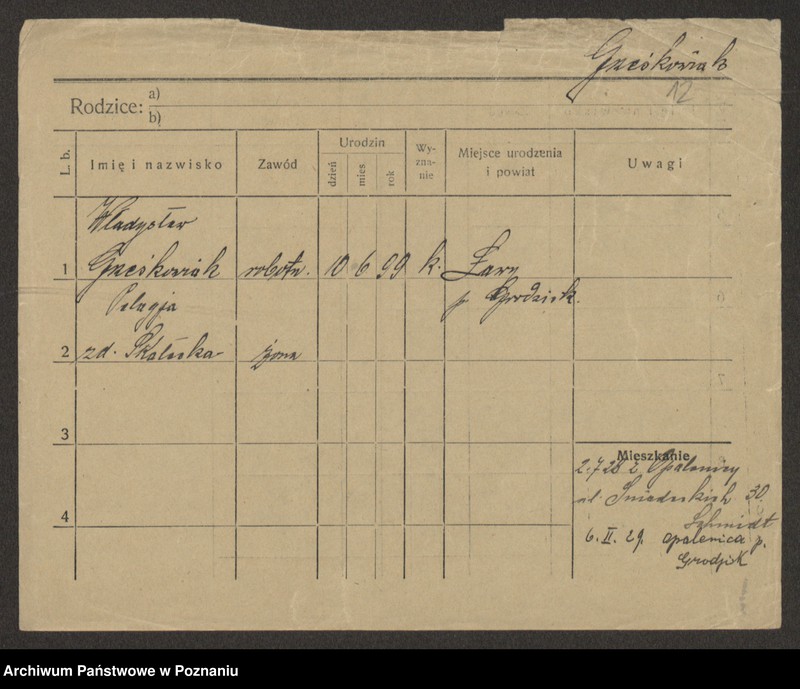 Grześkowiak
12
Rodzice: a)
b)
L. b.
Imię i nazwisko
Zawód
Urodzin
dzień
mies.
rok
Wy-
zna-
nie
Miejsce urodzenia
i powiat
Uwagi
Władysław
1 Grześkowiak robotn. 10 6 99 k.
p. Grodzisk.
Pelagja
2 zd. żona
3
4
Mieszkanie
2.7.28 z Opalenicy
ul. Śniadeckich 30.
Schmidt
6. II. 29. Opalenica p.
Grodzisk
Archiwum Państwowe w Poznaniu